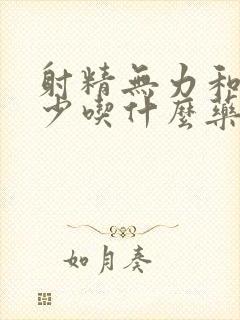 射精無力和
少喫什麼藥
如月奏